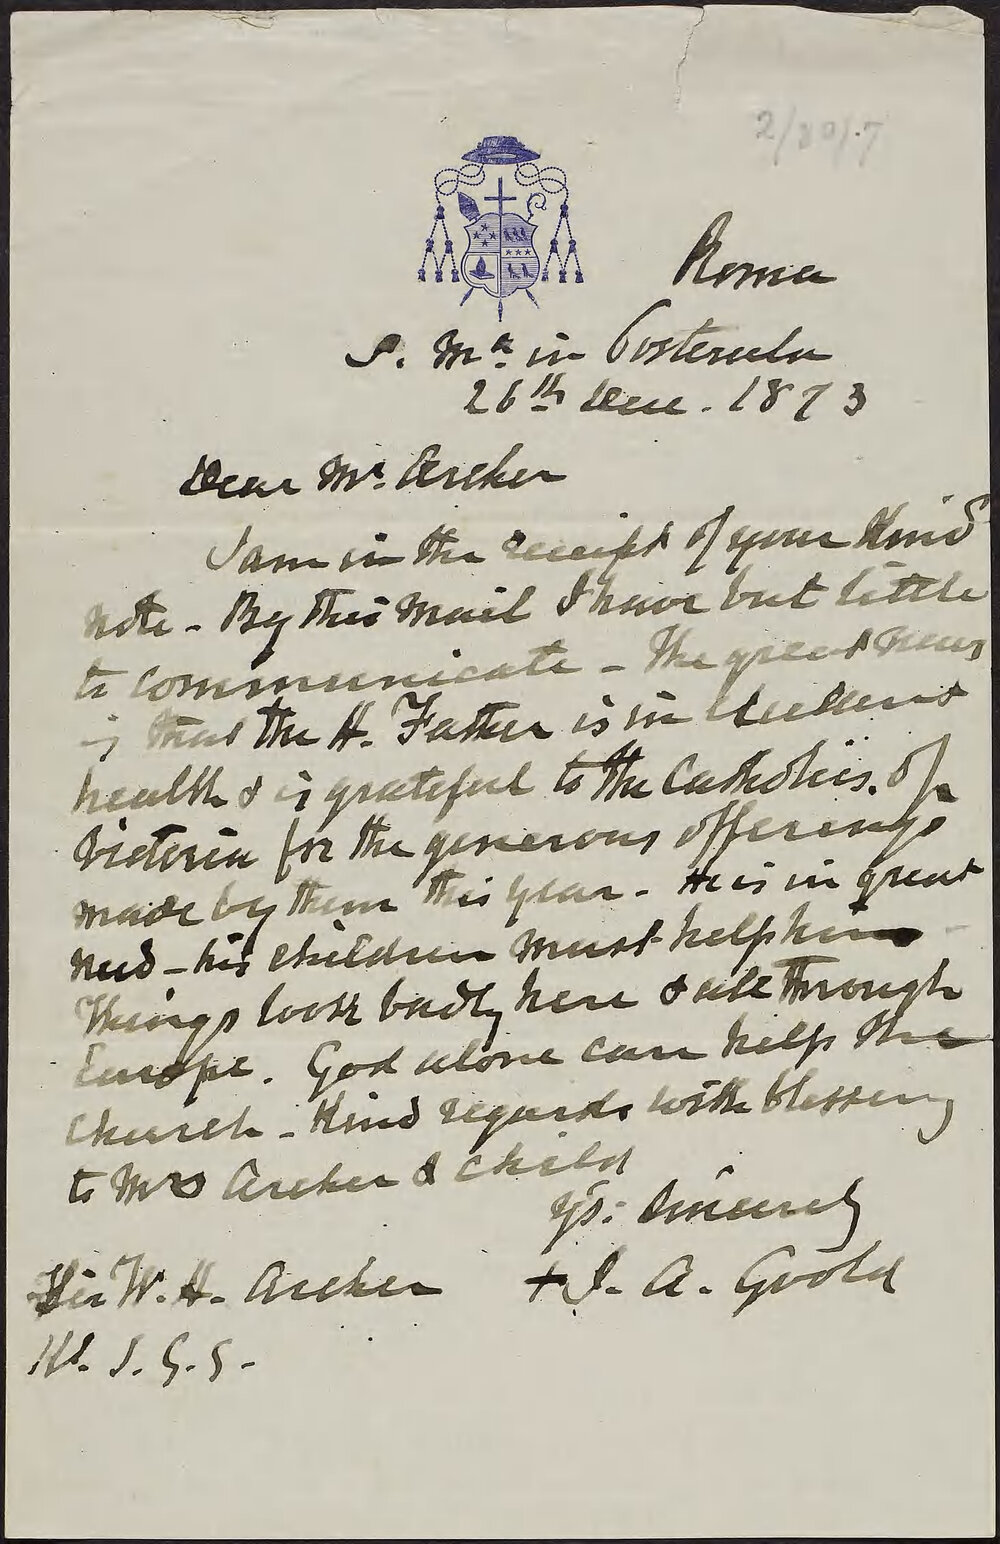 2/20/.7
Roma
S. Ma. in Posterula
26th Dec. 1873
Dear Mr. Archer
I am in the receipt of your kind
note - By this mail I have but little
to communicate - The great news
is that the H. Father is in excellent
health & is grateful to the Catholics. of
Victoria for the generous offerings
made by them this year - He is in great
need - his children must help him
Things look badly here & all through
Europe. God alone can help the
Church - Kind regards with blessing
to Mrs Archer & child
Yrs. Sincerely
+ J. A. Goold
Sir W. H. Archer
Kt. S. G. G.